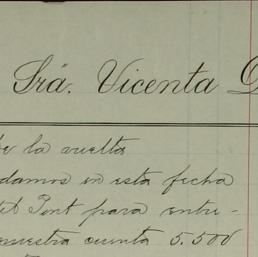 Srá. Vicenta
de la vuelta
damos en esta fecha
del Pont para entre-
nuestra cuenta 5.500